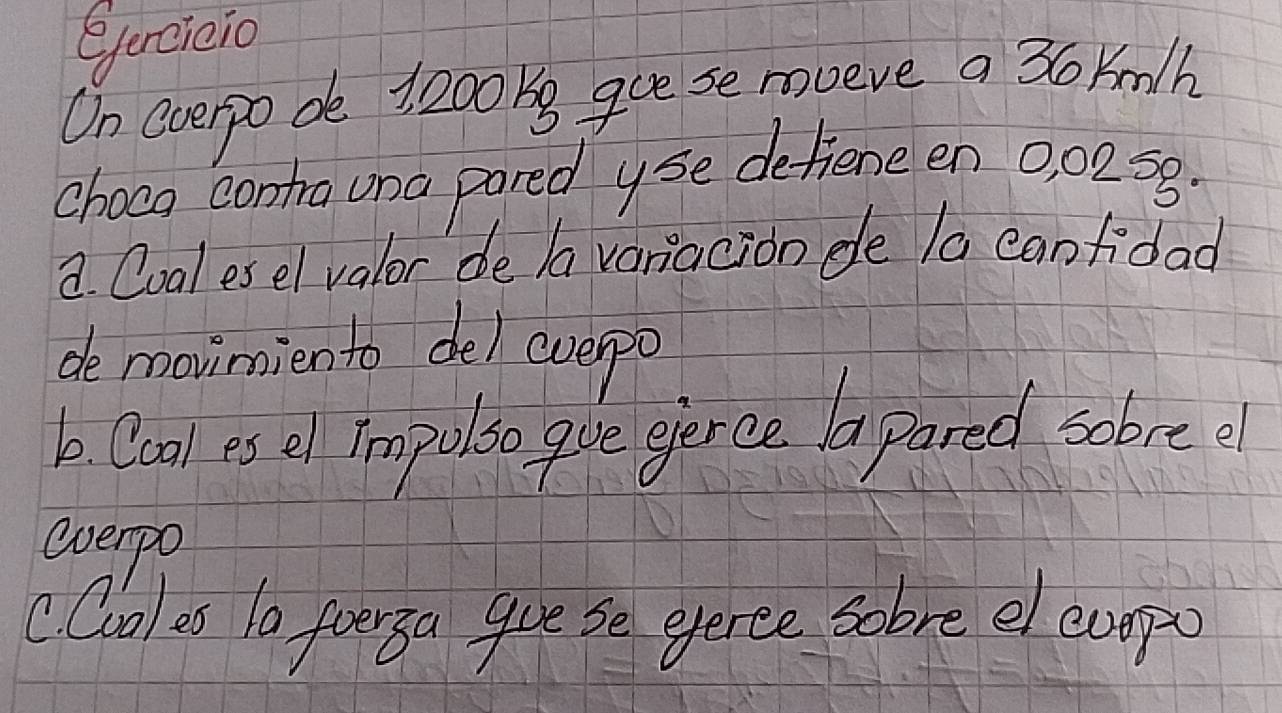 Ejercicio
Un cuerpo de 1.200 Kg que se mueve a 36 Km/h
choca contra una pared y se detiene en 0,02 sg.
a. Cual es el valor de la variación de la cantidad
de movimiento del cuerpo
b. Cual es el impulso que ejerce la pared sobre el
cuerpo
C. Cual es la fuerza que se ejerce sobre el cuerpo